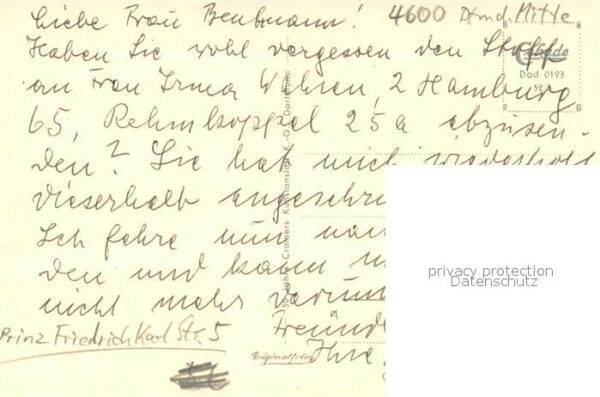 Liebe Frau Beutmann! 4600 Dtmd. Mitte
Haben Sie wohl vergessen den Stoff
an Frau Irma Wehsen, 2 Hamburg
65, Rehmkoppel 25a abzusen-
den? Sie hat mich wiederholt
dieserhalb angeschr
Ich fahre nun na
den und kann
nicht mehr darum
Freund
Ihre
Prinz Friedrich Karl Str. 5
Cramers Kunstanstalt K.-G., Dortmund
Originalfoto
Dod 0193
privacy protection
Datenschutz